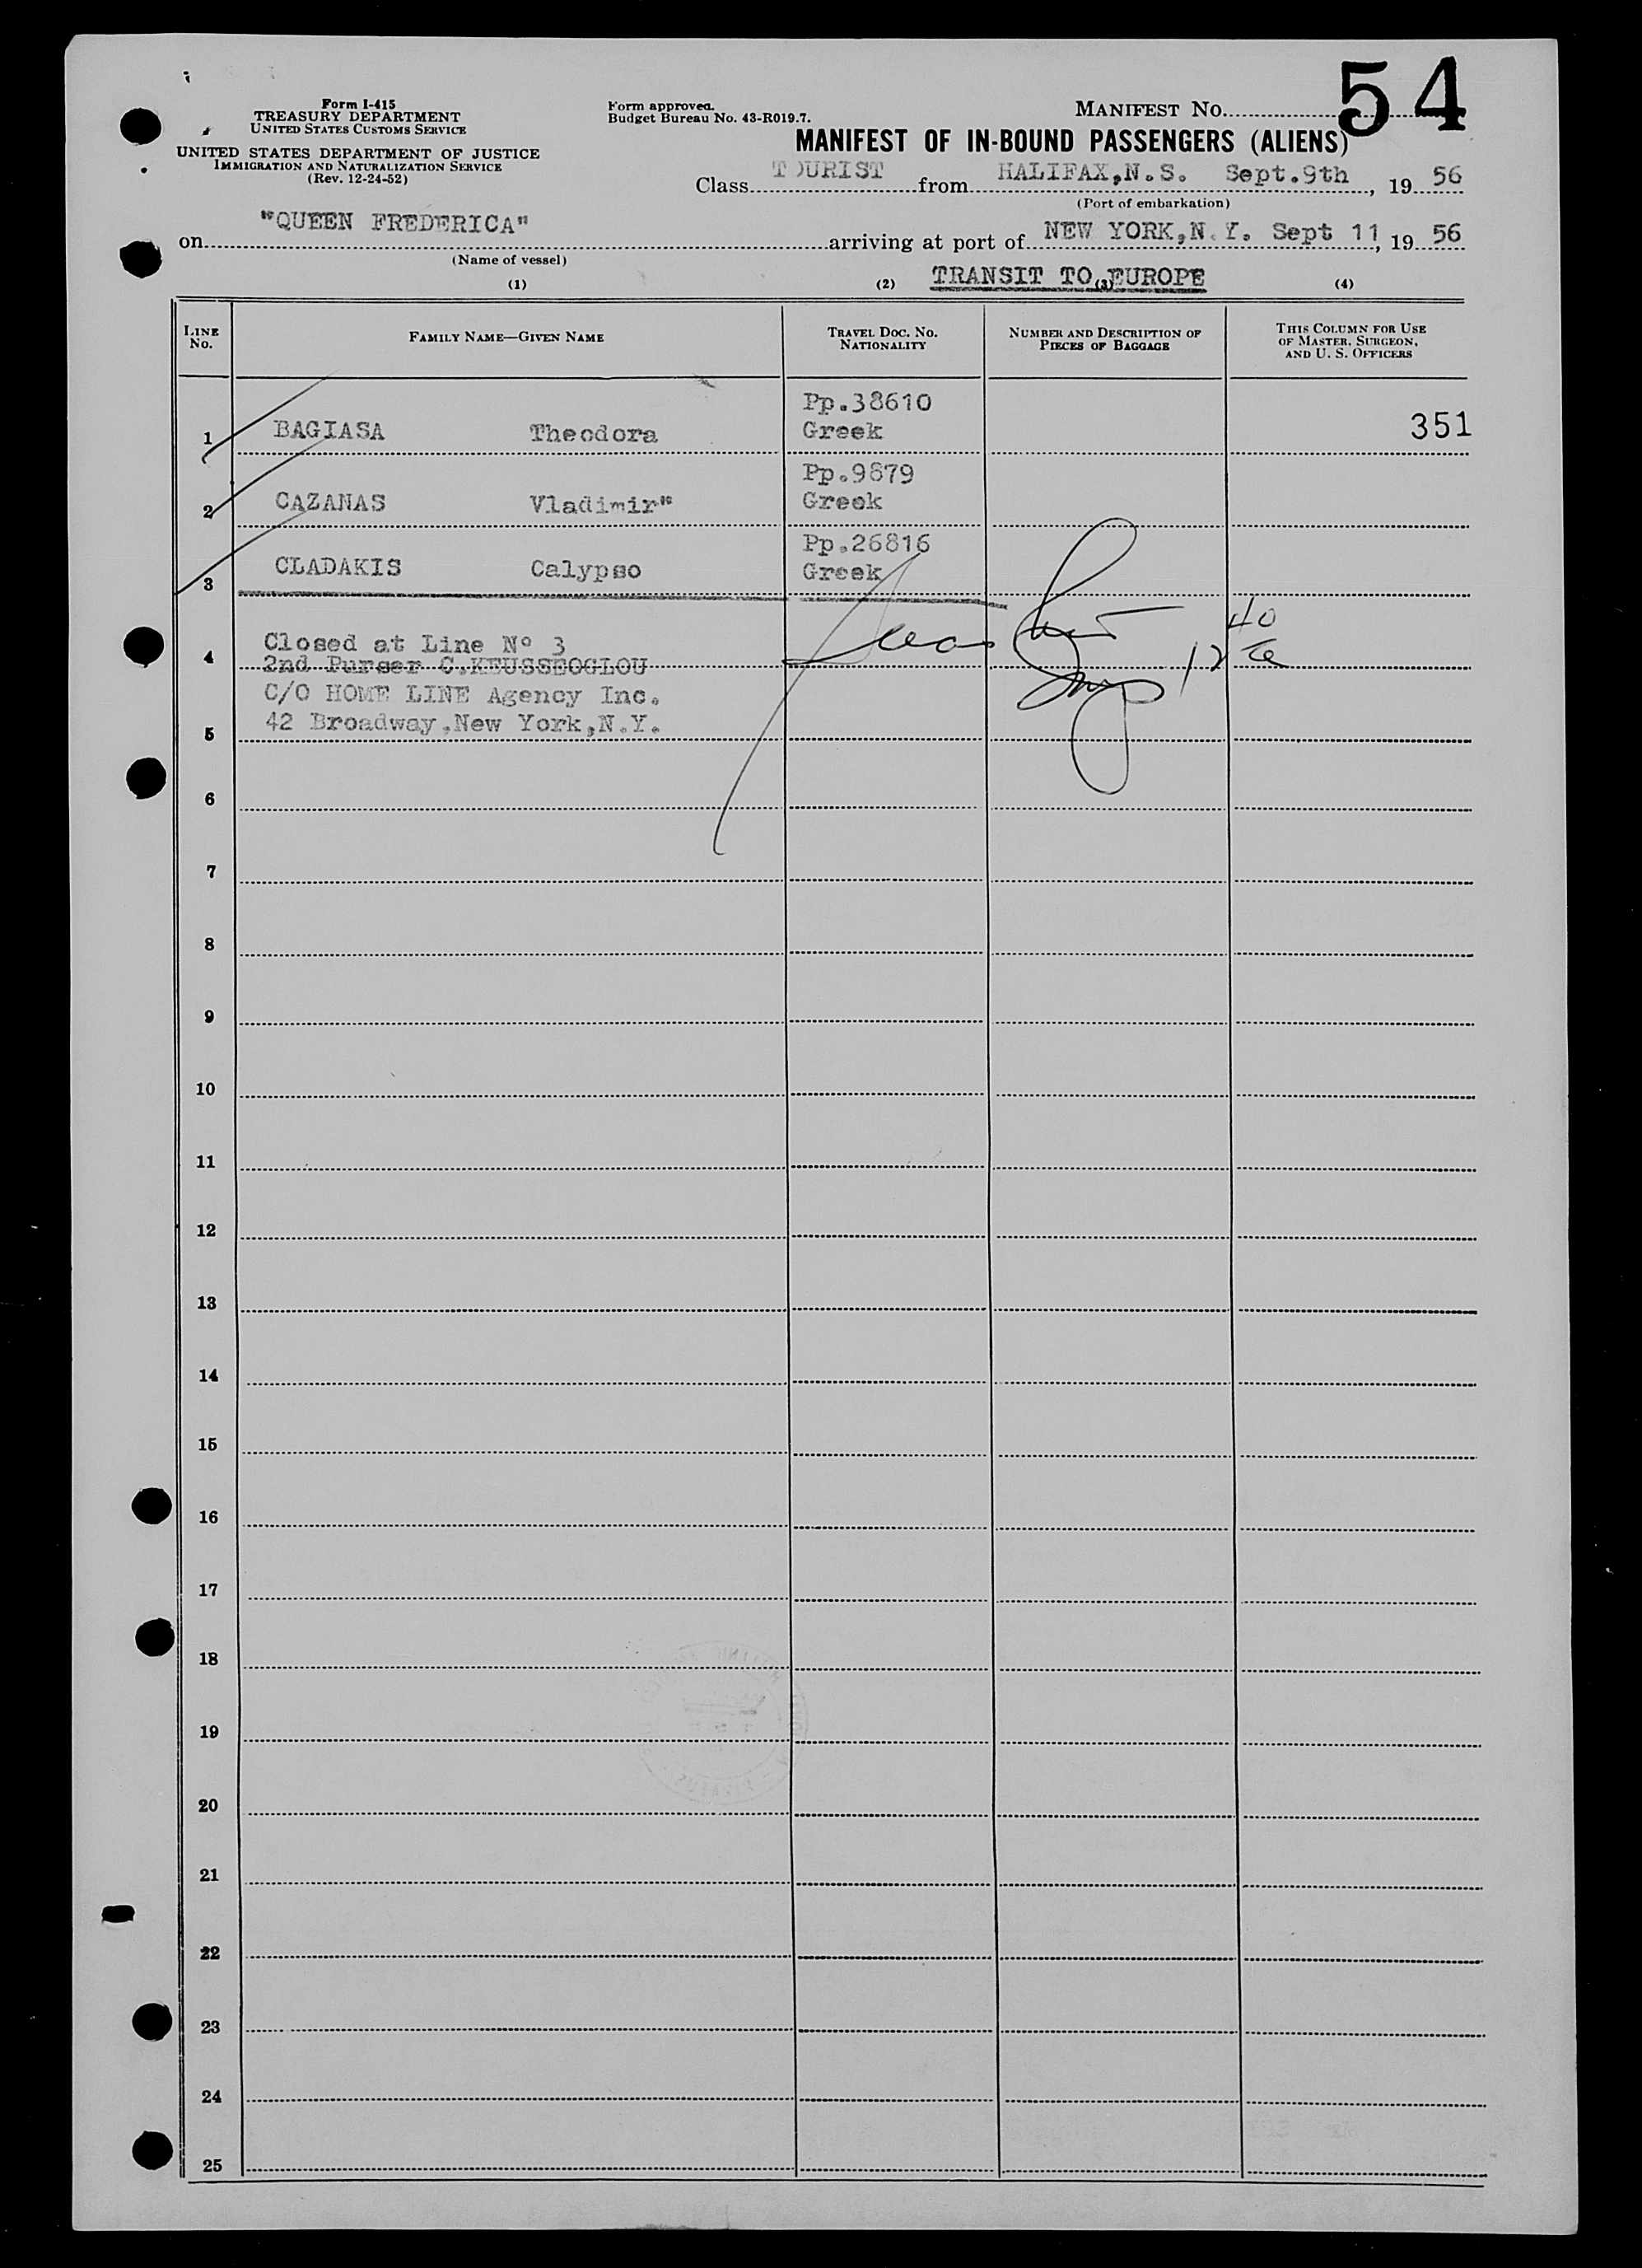 54
Form I-415
TREASURY DEPARTMENT
UNITED STATES CUSTOMS SERVICE
UNITED STATES DEPARTMENT OF JUSTICE
IMMIGRATION AND NATURALIZATION SERVICE
(Rev. 12-24-52)
Form approved.
Budget Bureau No. 43-R019.7.
MANIFEST No.
MANIFEST OF IN-BOUND PASSENGERS (ALIENS)
Class TOURIST from HALIFAX,N.S. Sept.9th, 19 56
(Port of embarkation)
on "QUEEN FREDERICA" arriving at port of NEW YORK,N.Y. Sept 11, 19 56
(Name of vessel)
TRANSIT TO EUROPE
(1) (2) (3) (4)
LINE No. FAMILY NAME—GIVEN NAME TRAVEL DOC. NO. NATIONALITY NUMBER AND DESCRIPTION OF PIECES OF BAGGAGE THIS COLUMN FOR USE OF MASTER, SURGEON, AND U. S. OFFICERS
Pp.38610
1 BAGIASA Theodora Greek 351
Pp.9879
2 CAZANAS Vladimir" Greek
Pp.26816
3 CLADAKIS Calypso Greek
Closed at Line Nº 3
4 2nd Purser C.KEUSSEOGLOU
C/O HOME LINE Agency Inc.
42 Broadway.New York,N.Y.
5
6
7
8
9
10
11
12
13
14
15
16
17
18
19
20
21
22
23
24
25